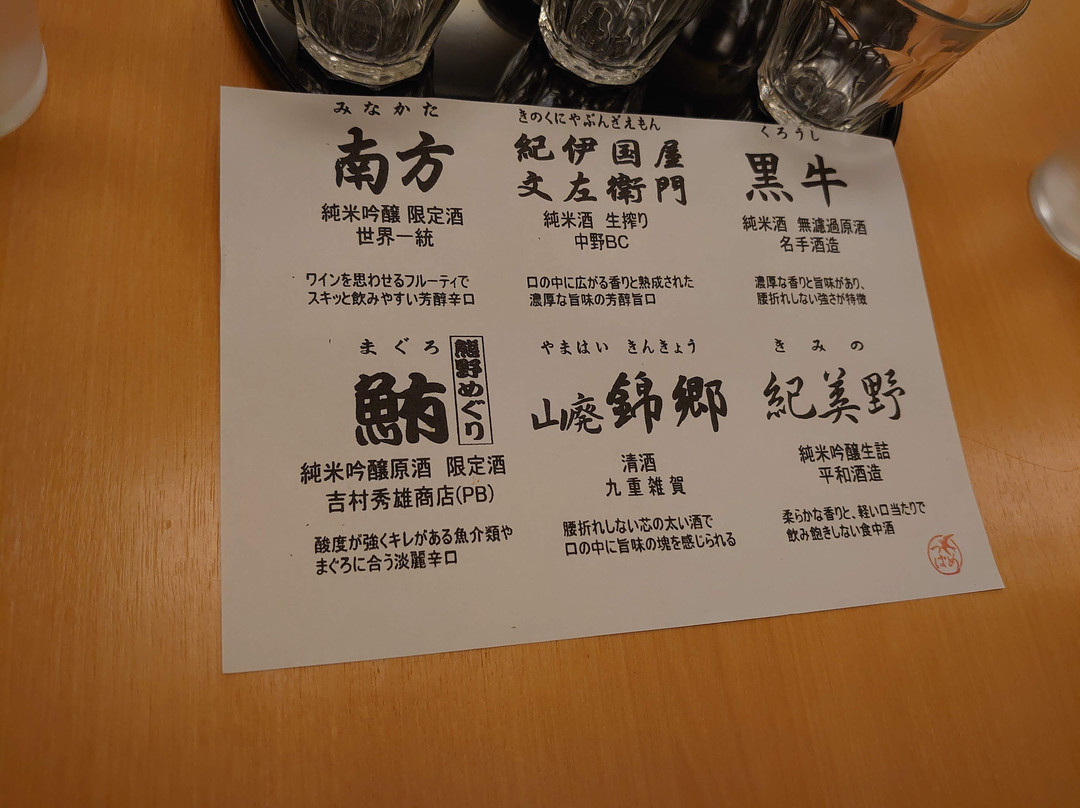 みなかた
南方
純米吟醸 限定酒
世界一統
ワインを思わせるフルーティで
スキッと飲みやすい芳醇辛口
きのくにやぶんざえもん
紀伊国屋
文左衛門
純米酒 生搾り
中野BC
口の中に広がる香りと熟成された
濃厚な旨味の芳醇旨口
くろうし
黒牛
純米酒 無濾過原酒
名手酒造
濃厚な香りと旨味があり、
腰折れしない強さが特徴
まぐろ
鮪
熊野めぐり
純米吟醸原酒 限定酒
吉村秀雄商店(PB)
酸度が強くキレがある魚介類や
まぐろに合う淡麗辛口
やまはい きんきょう
山廃 錦郷
清酒
九重雑賀
腰折れしない芯の太い酒で
口の中に旨味の塊を感じられる
きみの
紀美野
純米吟醸生詰
平和酒造
柔らかな香りと、軽い口当たりで
飲み飽きしない食中酒